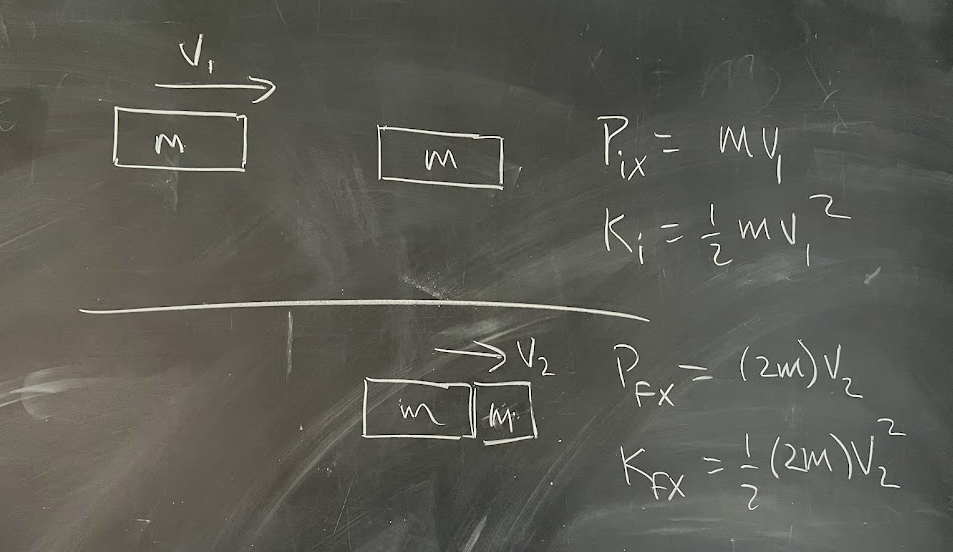 V₁
m
m
Pᵢₓ = mv₁
Kᵢ = ½ mv₁²
V₂
m
m
P_FX = (2m)V₂
K_FX = ½ (2m)V₂²